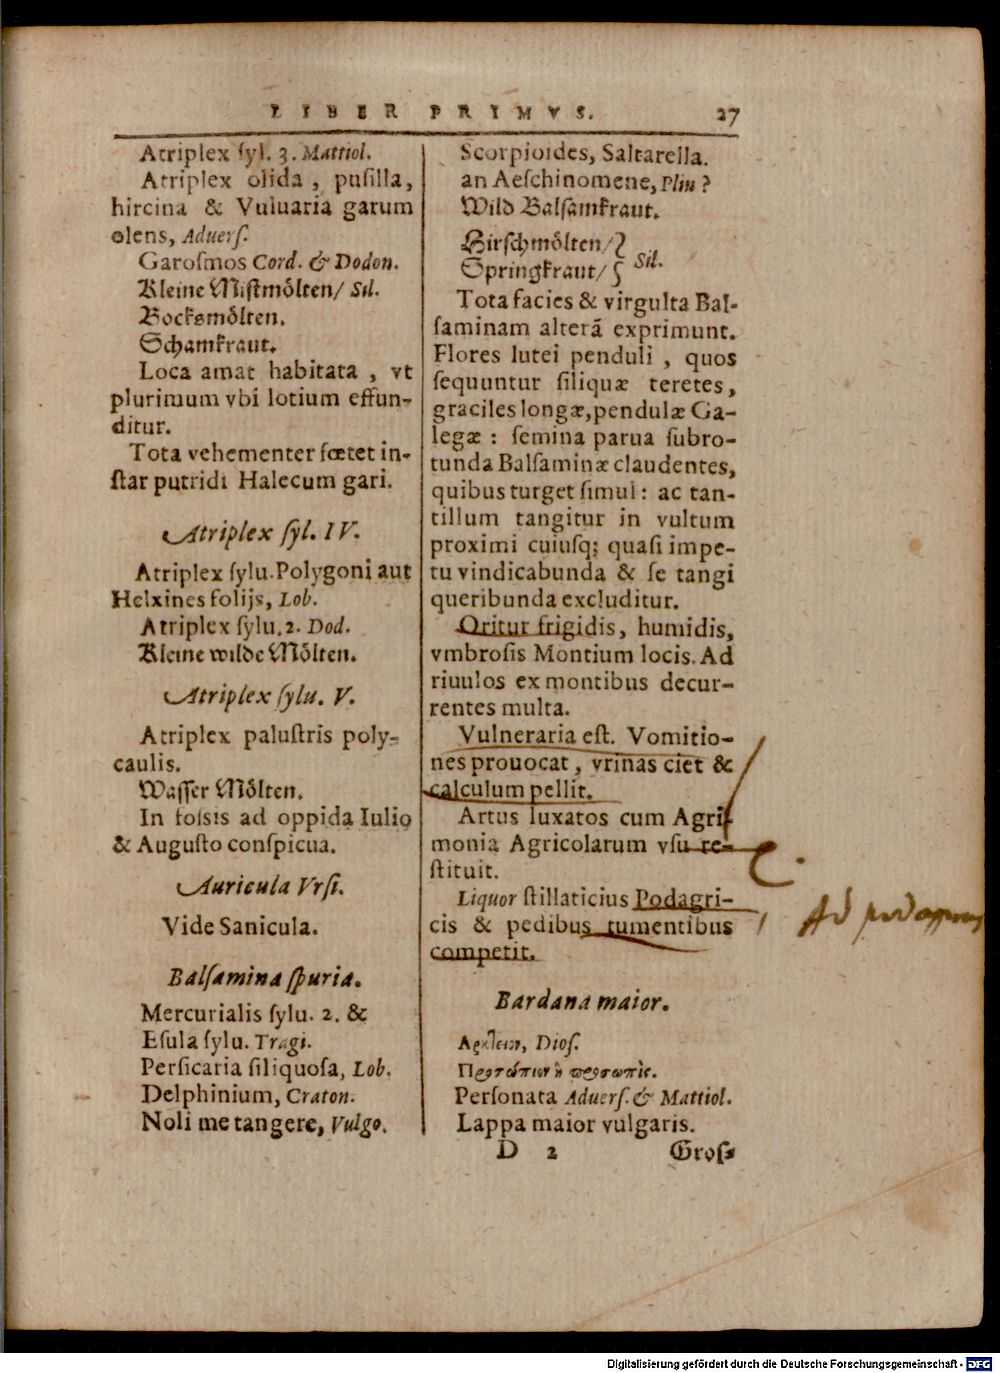 LIBER PRIMVS. 27
Atriplex ſyl. 3. Mattiol.
Atriplex olida, puſilla,
hircina & Vuluaria garum
olens, Aduerſ.
Garoſmos Cord. & Dodon.
Kleine Miſtmölten/ Sil.
Bocksmölten.
Schamkraut.
Loca amat habitata, vt
plurimum vbi lotium effun-
ditur.
Tota vehementer fœtet in-
ſtar putridi Halecum gari.
Atriplex ſyl. IV.
Atriplex ſylu. Polygoni aut
Helxines folijs, Lob.
Atriplex ſylu. 2. Dod.
Kleine wilde Mölten.
Atriplex ſylu. V.
Atriplex paluſtris poly-
caulis.
Waſſer Mölten.
In foſsis ad oppida Iulio
& Auguſto conſpicua.
Auricula Vrſi.
Vide Sanicula.
Balſamina ſpuria.
Mercurialis ſylu. 2. &
Eſula ſylu. Tragi.
Perſicaria ſiliquoſa, Lob.
Delphinium, Craton.
Noli me tangere, Vulgo.
Scorpioides, Saltarella.
an Aeſchinomene, Plin?
Wild Balſamkraut.
Hirſchmölten/
Springkraut/ } Sil.
Tota facies & virgulta Bal-
ſaminam alterã exprimunt.
Flores lutei penduli, quos
ſequuntur ſiliquæ teretes,
graciles longæ, pendulæ Ga-
legæ: ſemina parua ſubro-
tunda Balſaminæ claudentes,
quibus turget ſimul: ac tan-
tillum tangitur in vultum
proximi cuiuſq; quaſi impe-
tu vindicabunda & ſe tangi
queribunda excluditur.
Oritur frigidis, humidis,
vmbroſis Montium locis. Ad
riuulos ex montibus decur-
rentes multa.
Vulneraria eſt. Vomitio-
nes prouocat, vrinas ciet &
calculum pellit.
Artus luxatos cum Agri-
monia Agricolarum vſu re-
ſtituit.
Liquor ſtillaticius Podagri-
cis & pedibus tumentibus
competit.
Ad podagram
Bardana maior.
Αρκειον, Dioſ.
Προσώπιον ἢ προσωπίς.
Perſonata Aduerſ. & Mattiol.
Lappa maior vulgaris.
D 2 Groſ⸗
Digitalisierung gefördert durch die Deutsche Forschungsgemeinschaft - DFG